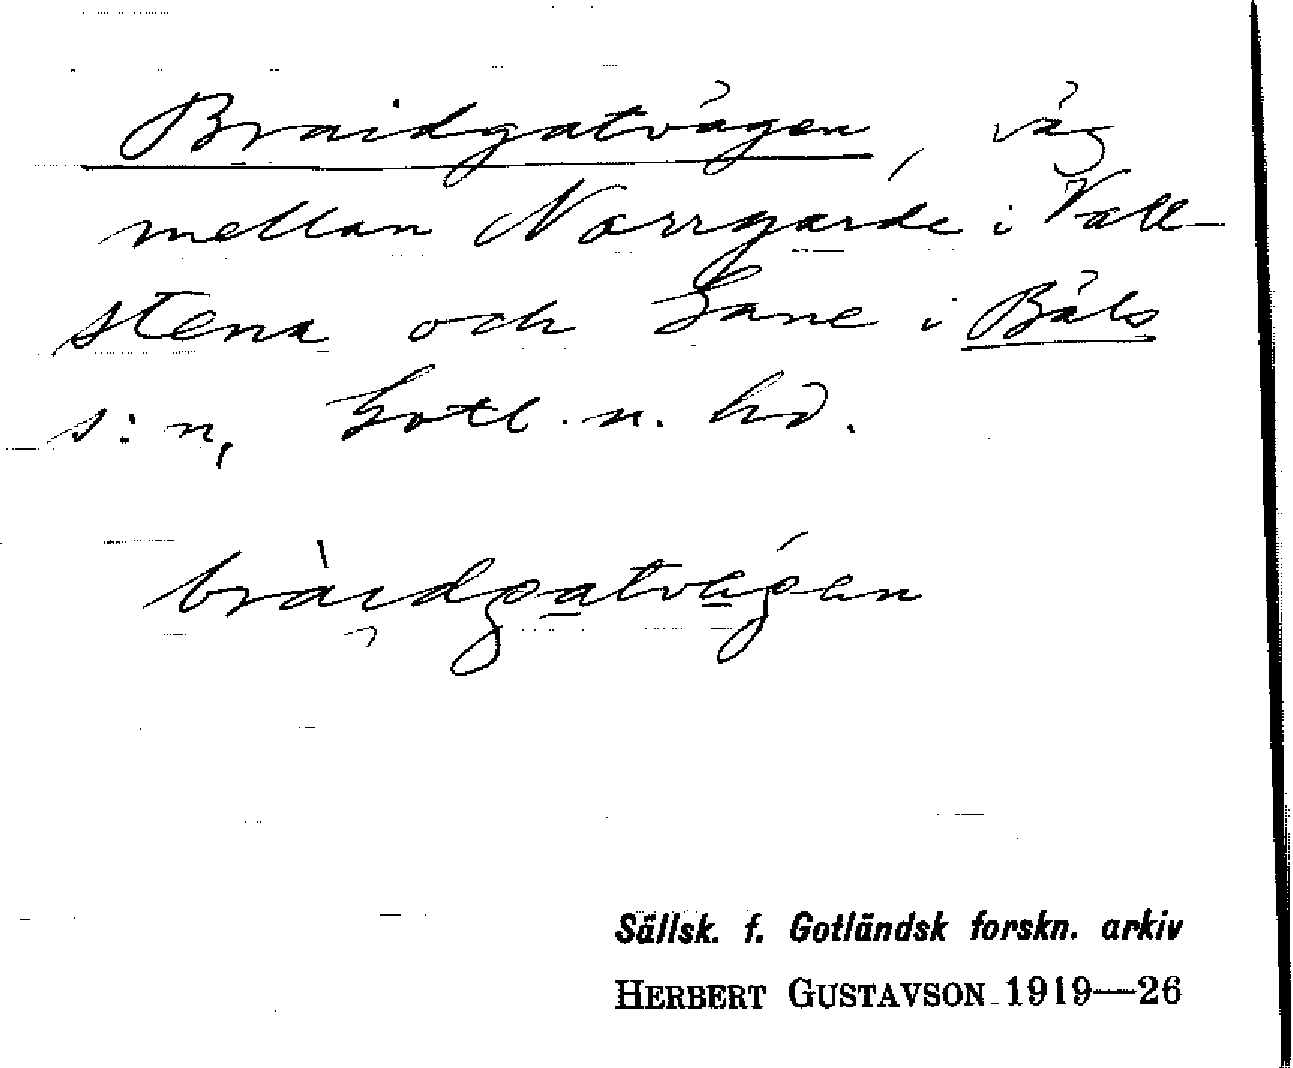 Braidgatvägen, väg
mellan Norrgårde i Vall-
stena och Gane i Bäls
s:n, Gotl. n. hd.
bràidgatvägen
Sällsk. f. Gotländsk forskn. arkiv
HERBERT GUSTAVSON 1919—26